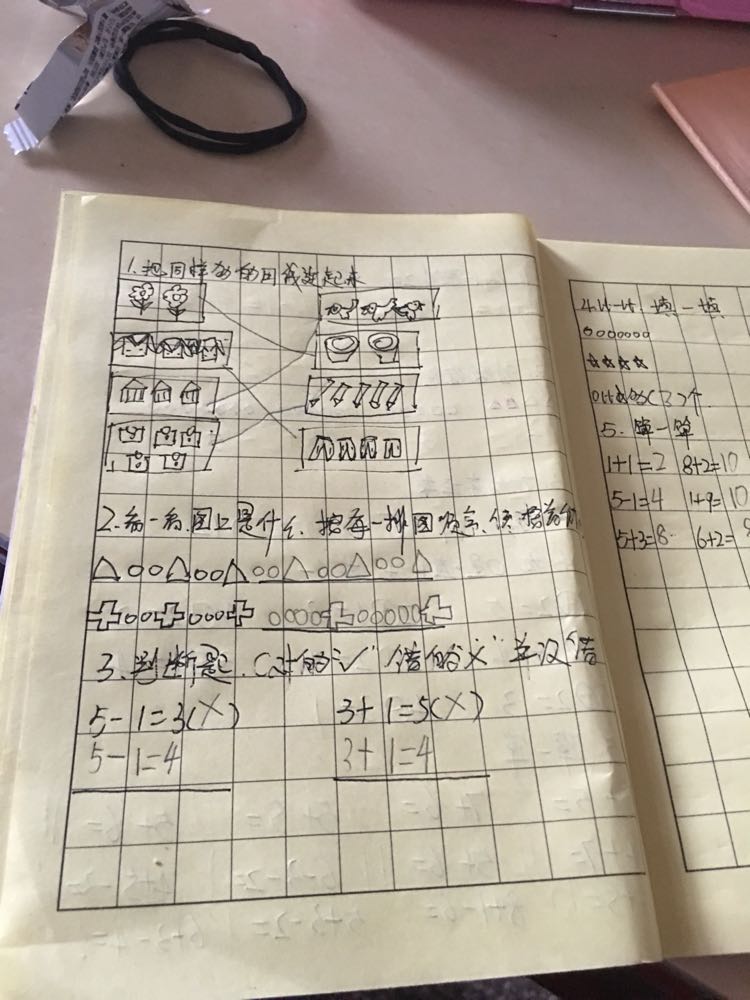 1.把同样多的用线连起来
2.看一看,图上是什么,按每一排图
3.判断题.(对的"√" 错的"×" 并改错
5-1=3(×) 3+1=5(×)
5-1=4 3+1=4
填一填
5.算一算
1+1=2 8+2=10
5-1=4 1+9=10
5+3=8 6+2=8